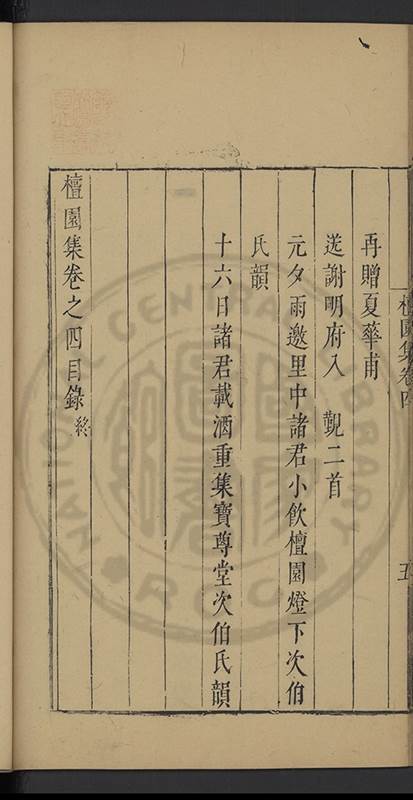 檀園集卷四
五
再贈夏華甫
送謝明府入　覲二首
元夕雨邀里中諸君小飲檀園燈下次伯
氏韻
十六日諸君載酒重集寶尊堂次伯氏韻
檀園集卷之四目錄終
NATIONAL CENTRAL LIBRARY
R.O.C